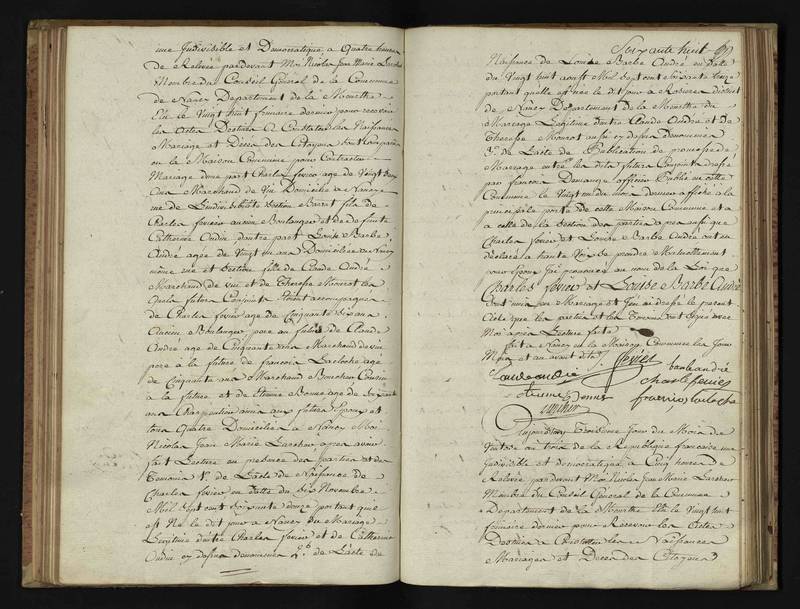 une Indivisible et Democratique, a Quatre heures
de Relevée pardevant Moi Nicolas Jean Marie
Membre du Conseil Général de la Commune
de Nancy Departement de la Meurthe
Elu le Vingt huit frimaire dernier pour recevoir
les actes Destinés a Constater les Naissances
Mariage et Deces des Citoyens
en la Maison Commune pour Contracter
Mariage d'une part Charles ferier age de Vingt
ans Marchand de Vin Domicilié a Nancy
rue de section fils de
Charles ferier ancien Boulanger et de defunte
Catherine Oudin d'autre part Louise Barbe
André agée de Vingt un ans Domiciliée a Nancy
même rue et Section fille de Claude André
Marchand de vin et de Therese les
quels futurs Conjoints étoient accompagnés
de Charles ferier age de Cinquante six ans
Ancien Boulanger pere au futur de Claude
André age de Cinquante ans Marchand de vin
pere a la future de francois age
de Cinquante ans Marchand Boucher Cousin
a la future et de Etienne age de
ans Charpentier ami aux futurs Epoux et
tous Quatre Domiciliés a Nancy Moi
Nicolas Jean Marie apres avoir
fait Lecture en presence des parties et des
Temoins 1°. de L'acte de Naissance de
Charles ferier en datte du Six Novembre
Mil Sept cent Soixante douze portant que
est Né le dit jour a Nancy du Mariage
Legitime d'entre Charles ferier et de Catherine
Oudin cy dessus denommés 2°. de L'acte de
Soixante huit
Naissance de Louise Barbe André en datte
du Vingt huit aoust Mil Sept cent Soixante
portant quelle est née le dit jour a Rosieres district
de Nancy Departement de la Meurthe du
Mariage Legitime d'entre Claude André et de
Therese aussi cy dessus Denommés
3°. de L'acte de Publication de promesse de
Mariage entre les dits futurs Conjoints dressé
par francois officier Public en cette
Commune le Vingt du mois dernier affiché a la
principale porte de cette Maison Commune et a
a celle de la Section des parties apres aussi que
Charles ferier et Louise Barbe André ont eu
declaré a haute Voix se prendre Mutuellement
pour Epoux J'ai prononcé au nom de la Loi que
Charles ferier et Louise Barbe André
sont unis par Mariage et J'ai redigé le present
Acte que les parties et les Temoins ont Signé avec
Moi apres Lecture faite
fait a Nancy en la Maison Commune les Jour
Mois et an avant dits
ferier
barbe andré
Claude andré
charle ferier
etienne
francois
Aujourd'huy Treizieme Jour du Mois de
Ventose an trois de la Republique francaise une
Indivisible et democratique a Cinq heures de
Relevée pardevant Moi Nicolas Jean Marie
Membre du Conseil Général de la Commune
Departement de la Meurthe Elu le Vingt huit
frimaire dernier pour Recevoir les Actes
Destinés a Constater les Naissances
Mariages et Deces des Citoyens